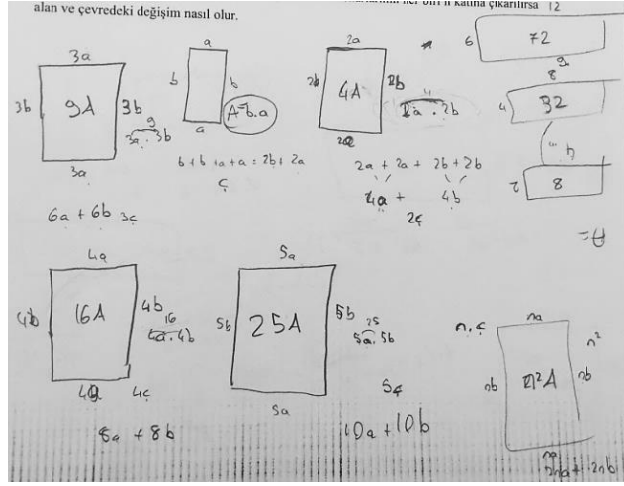 her biri n katına çıkarılırsa 12
alan ve çevredeki değişim nasıl olur.
3a
3b 9A 3b
9
3a . 3b
3a
6a + 6b 3ç
a
b b
a
A=b.a
b + b + a + a = 2b + 2a
ç
2a
2b 4A 2b
4
2a . 2b
2a
2a + 2a + 2b + 2b
4a + 4b
2ç
6 72
9
8
4 32
4
2 8
4a
4b 16A 4b
16
4a . 4b
4a 4ç
8a + 8b
5a
5b 25A 5b
25
5a . 5b
5a
5ç
10a + 10b
n.ç na n²
nb n²A nb
na
2na + 2nb